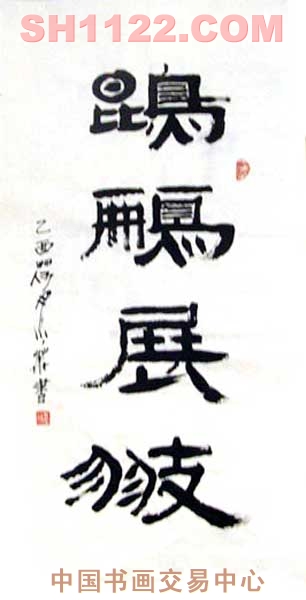 SH1122.COM
鵾鵬展翄
乙酉 書
中国书画交易中心